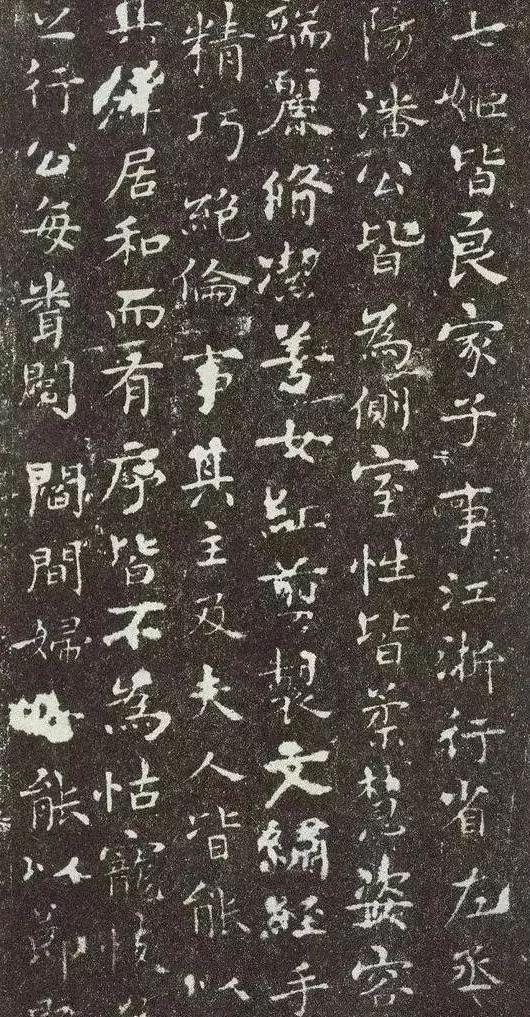 七姬皆良家子事江浙行省左丞
陽潘公皆為側室性皆柔慧姿容
端麗脩潔善女紅剪製文繡經手
精巧絕倫事其主及夫人皆能以
其群居和而有序皆不為怙寵忮
之行公每閻間婦能以節